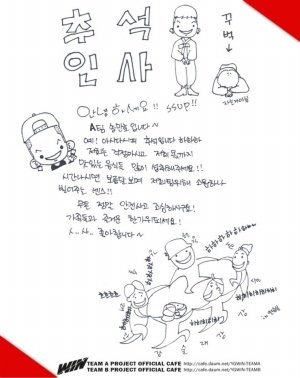 추석
인사
꾸벅
안녕하세요!! SSUP!!
A팀 송민호 입니다~
예! 아시다시피 추석입니다 하하하
저희는 걱정마시고 저희 몫까지
맛있는 음식들 많이 섭취해주세요!!
시간나시면 보름달 보며 저희팀위해 소원하나
빌어주는 센스!!
무튼 정말 안전사고 조심하시구요!
가족들과 즐거운 한가위되세요!
ㅅ..사..좋아합니다~
하하하하하하
WIN TEAM A PROJECT OFFICIAL CAFE http://cafe.daum.net/YGWIN-TEAMA
TEAM B PROJECT OFFICIAL CAFE http://cafe.daum.net/YGWIN-TEAMB